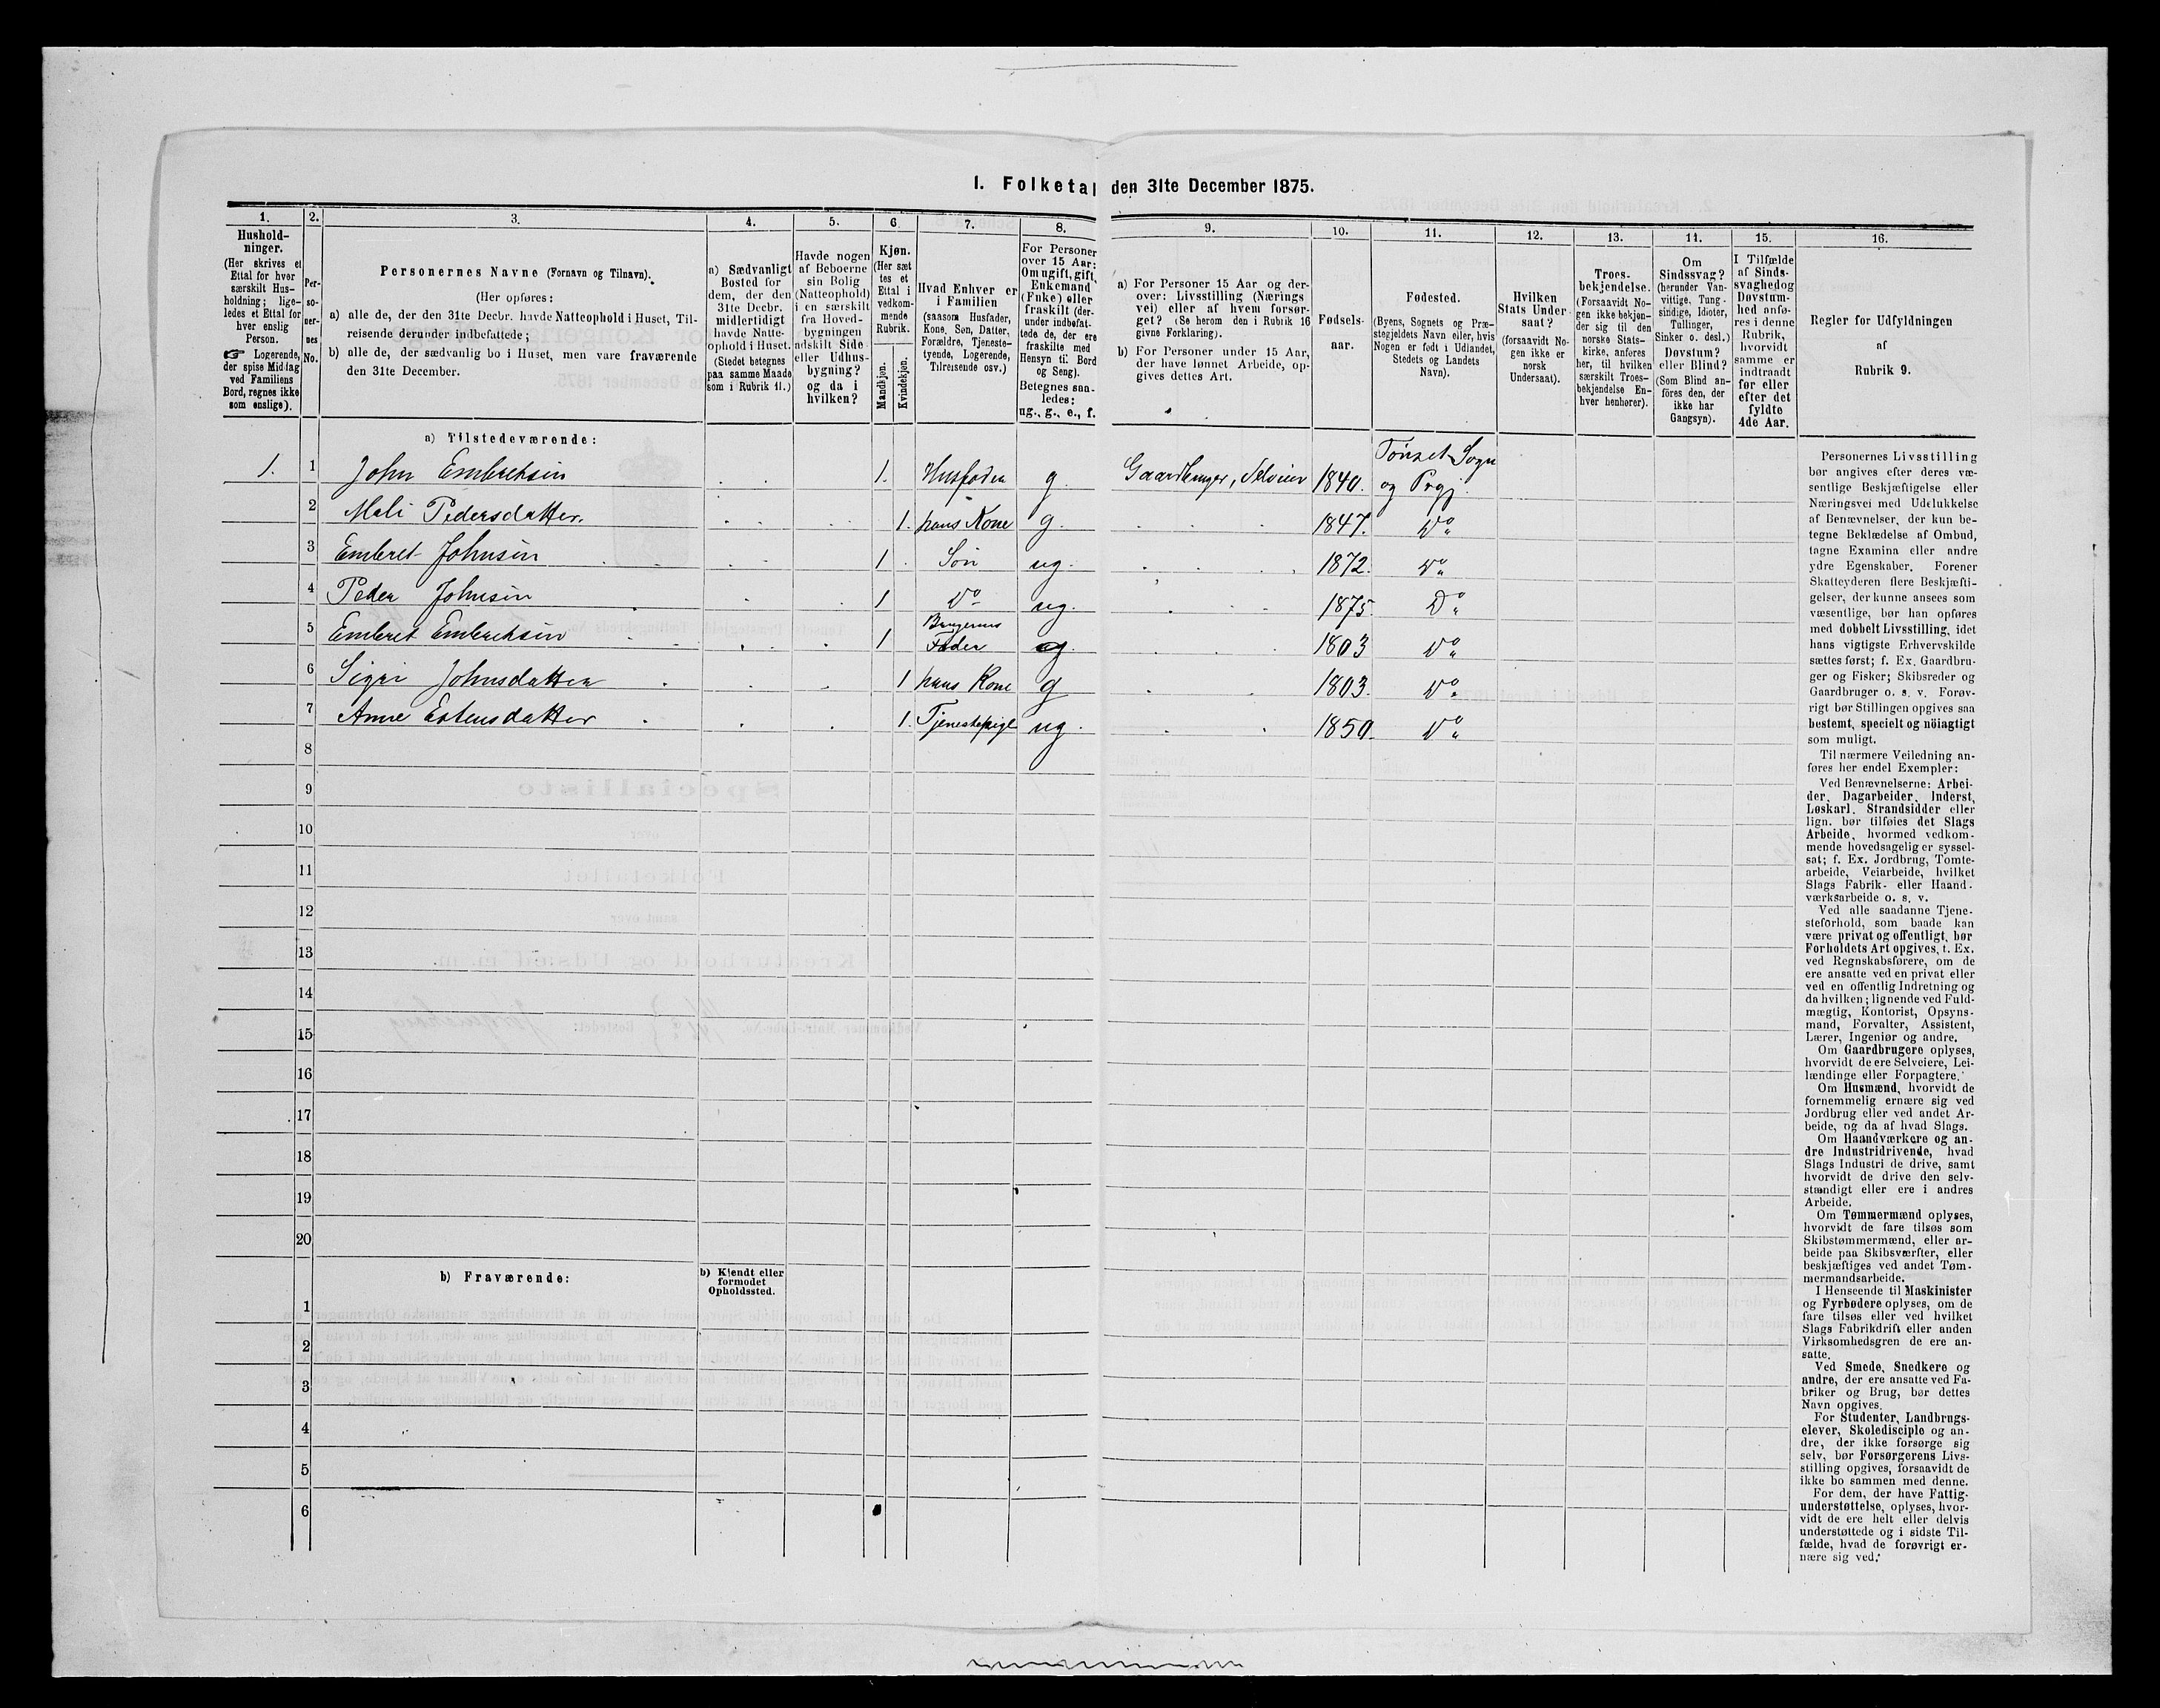 1. Folketal den 31te December 1875.
1.
Hushold-
ninger.
(Her skrives et
Ettal for hver
særskilt Hus-
holdning; lige-
ledes et Ettal for
hver enslig
Person.
☞ Logerende,
der spise Middag
ved Familiens
Bord, regnes ikke
som enslige).
2.
Per-
so-
ner-
nes
No.
3.
Personernes Navne (Fornavn og Tilnavn).
(Her opføres:
a) alle de, der den 31te Decbr. havde Natteophold i Huset, Til-
reisende derunder indbefattede;
b) alle de, der sædvanlig bo i Huset, men vare fraværende
den 31te December.
4.
a) Sædvanligt
Bosted for
dem, der den
31te Decbr.
midlertidigt
havde Natte-
ophold i Huset.
(Stedet betegnes
paa samme Maade
som i Rubrik 11.)
5.
Havde nogen
af Beboerne
sin Bolig
(Natteophold)
i en særskilt
fra Hoved-
bygningen
adskilt Side-
eller Udhus-
bygning?
og da i
hvilken?
6.
Kjøn.
(Her sæt
tes et
Ettal i
vedkom-
mende
Rubrik.
Mandkjøn.
Kvindekjøn.
7.
Hvad Enhver er
i Familien
(saasom Husfader,
Kone, Søn, Datter,
Forældre, Tjeneste-
tyende, Logerende,
Tilreisende osv.)
8.
For Personer
over 15 Aar:
Om ugift, gift,
Enkemand
(Enke) eller
fraskilt (der-
under indbefat-
tede de, der ere
fraskilte med
Hensyn til Bord
og Seng).
Betegnes saa-
ledes:
ug., g., e., f.
9.
a) For Personer 15 Aar og der-
over: Livsstilling (Nærings
vei) eller af hvem forsør-
get? (Se herom den i Rubrik 16
givne Forklaring).
b) For Personer under 15 Aar,
der have lønnet Arbeide, op-
gives dettes Art.
10.
Fødsels-
aar.
11.
Fødested.
(Byens, Sognets og Præ-
stegjeldets Navn eller, hvis
Nogen er født i Udlandet,
Stedets og Landets
Navn).
12.
Hvilken
Stats Under
saat?
(forsaavidt No-
gen ikke er
norsk
Undersaat).
13.
Troes-
bekjendelse.
(Forsaavidt No-
gen ikke bekjen-
der sig til den
norske Stats-
kirke, anføres
her, til hvilken
særskilt Troes-
bekjendelse En-
hver henhører).
14.
Om
Sindssvag?
(herunder Van-
vittige, Tung-
sindige, Idioter,
Tullinger,
Sinker o. desl.)
Døvstum?
eller Blind?
(Som Blind an-
føres den, der
ikke har
Gangsyn).
15.
I Tilfælde
af Sinds-
svaghed og
Døvstum-
hed anfø-
res i denne
Rubrik,
hvorvidt
samme er
indtraadt
før eller
efter det
fyldte
4de Aar.
16.
Regler for Udfyldningen
af
Rubrik 9.
a) Tilstedeværende:
1. 1 John Embretsen 1. Husfader g. Gaardbruger, Selveier 1840. Tønset Sogn og Prgj.
2 Mali Pedersdatter. 1. hans Kone g. 1847. Do
3 Embret Johnsen 1 Søn ug. 1872. Do
4 Peder Johnsen 1 Do ug. 1875. Do
5 Embret Embretsen 1 Brugerens Fader g. 1803 Do
6 Sigri Johnsdatter 1 hans Kone g 1803. Do
7 Anne Estensdatter 1. Tjenestepige ug. 1850. Do
8
9
10
11
12
13
14
15
16
17
18
19
20
b) Fraværende:
b) Kjendt eller
formodet
Opholdssted.
1
2
3
4
5
6
Personernes Livsstilling
bør angives efter deres væ-
sentlige Beskjæftigelse eller
Næringsvei med Udelukkelse
af Benævnelser, der kun be-
tegne Beklædelse af Ombud,
tagne Examina eller andre
ydre Egenskaber. Forener
Skatteyderen flere Beskjæfti-
gelser, der kunne ansees som
væsentlige, bør han opføres
med dobbelt Livsstilling, idet
hans vigtigste Erhvervskilde
sættes først; f. Ex. Gaardbru-
ger og Fisker; Skibsreder og
Gaardbruger o. s. v. Forøv-
rigt bør Stillingen opgives saa
bestemt, specielt og nöiagtigt
som muligt.
Til nærmere Veiledning an-
føres her endel Exempler:
Ved Benævnelserne: Arbei-
der, Dagarbeider, Inderst,
Løskarl, Strandsidder eller
lign. bør tilføies det Slags
Arbeide, hvormed vedkom-
mende hovedsagelig er syssel-
sat; f. Ex. Jordbrug, Tomte-
arbeide, Veiarbeide, hvilket
Slags Fabrik- eller Haand-
værksarbeide o. s. v.
Ved alle saadanne Tjene-
steforhold, som baade kan
være privat og offentligt, bør
Forholdets Art opgives, f. Ex.
ved Regnskabsførere, om de
ere ansatte ved en privat eller
ved en offentlig Indretning og
da hvilken; lignende ved Fuld-
mægtig, Kontorist, Opsyns-
mand, Forvalter, Assistent,
Lærer, Ingeniør og andre.
Om Gaardbrugere oplyses,
hvorvidt de ere Selveiere, Lei-
lændinge eller Forpagtere.
Om Husmænd, hvorvidt de
fornemmelig ernære sig ved
Jordbrug eller ved andet Ar-
beide, og da af hvad Slags.
Om Haandværkere og an-
dre Industridrivende, hvad
Slags Industri de drive, samt
hvorvidt de drive den selv-
stændigt eller ere i andres
Arbeide.
Om Tømmermænd oplyses,
hvorvidt de fare tilsøs som
Skibstømmermænd, eller ar-
beide paa Skibsværfter, eller
beskjæftiges ved andet Tøm-
mermandsarbeide.
I Henseende til Maskinister
og Fyrbødere oplyses, om de
fare tilsøs eller ved hvilket
Slags Fabrikdrift eller anden
Virksomhedsgren de ere an-
satte.
Ved Smede, Snedkere og
andre, der ere ansatte ved Fa-
briker og Brug, bør dettes
Navn opgives.
For Studenter, Landbrugs-
elever, Skoledisciple og an-
dre, der ikke forsørge sig
selv, bør Forsørgerens Livs-
stilling opgives, forsaavidt de
ikke bo sammen med denne.
For dem, der have Fattig-
understøttelse, oplyses, hvor-
vidt de ere helt eller delvis
understøttede og i sidste Til-
fælde, hvad de forøvrigt er-
nære sig ved.